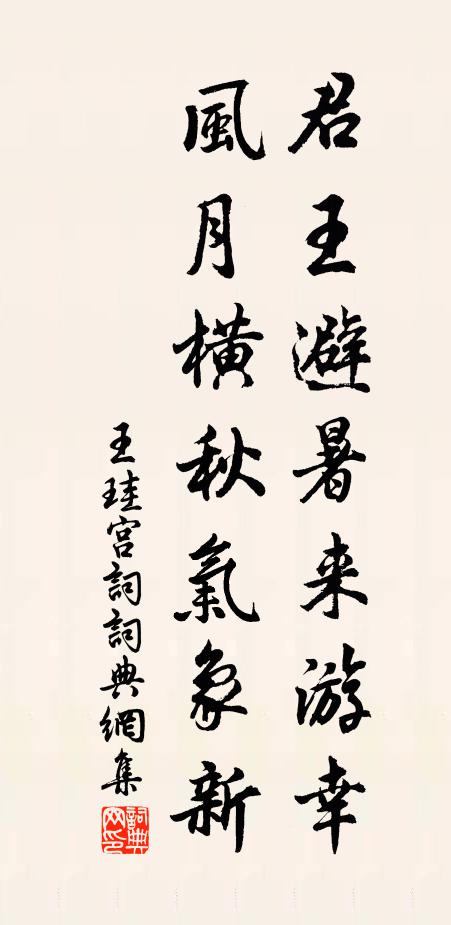 君王避暑来游幸
風月橫秋氣象新
王珪宮詞詞典網集
詞典网印